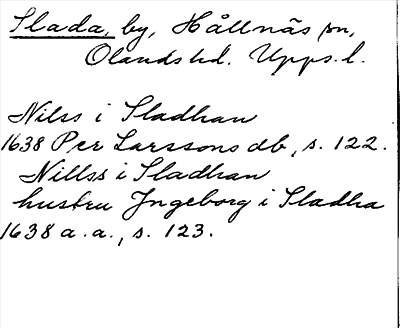 Slada, by, Hållnäs sn,
Olands hd. Upps. l.
Nilss i Sladhan
1638 Per Larssons db, s. 122.
Nillss i Sladhan
hustru Jngeborg i Sladha
1638 a. a., s. 123.